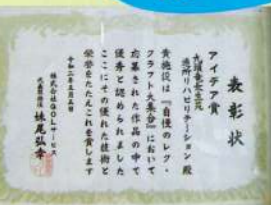 表彰状
アイデア賞
通所リハビリテーション 殿
貴施設は『自慢のレク・
クラフト大集合』において
応募された作品の中で
優秀と認められました
ここにその優れた技術と
栄誉をたたえこれを賞します
令和二年五月五日
株式会社QOLサービス
代表取締役 妹尾弘幸